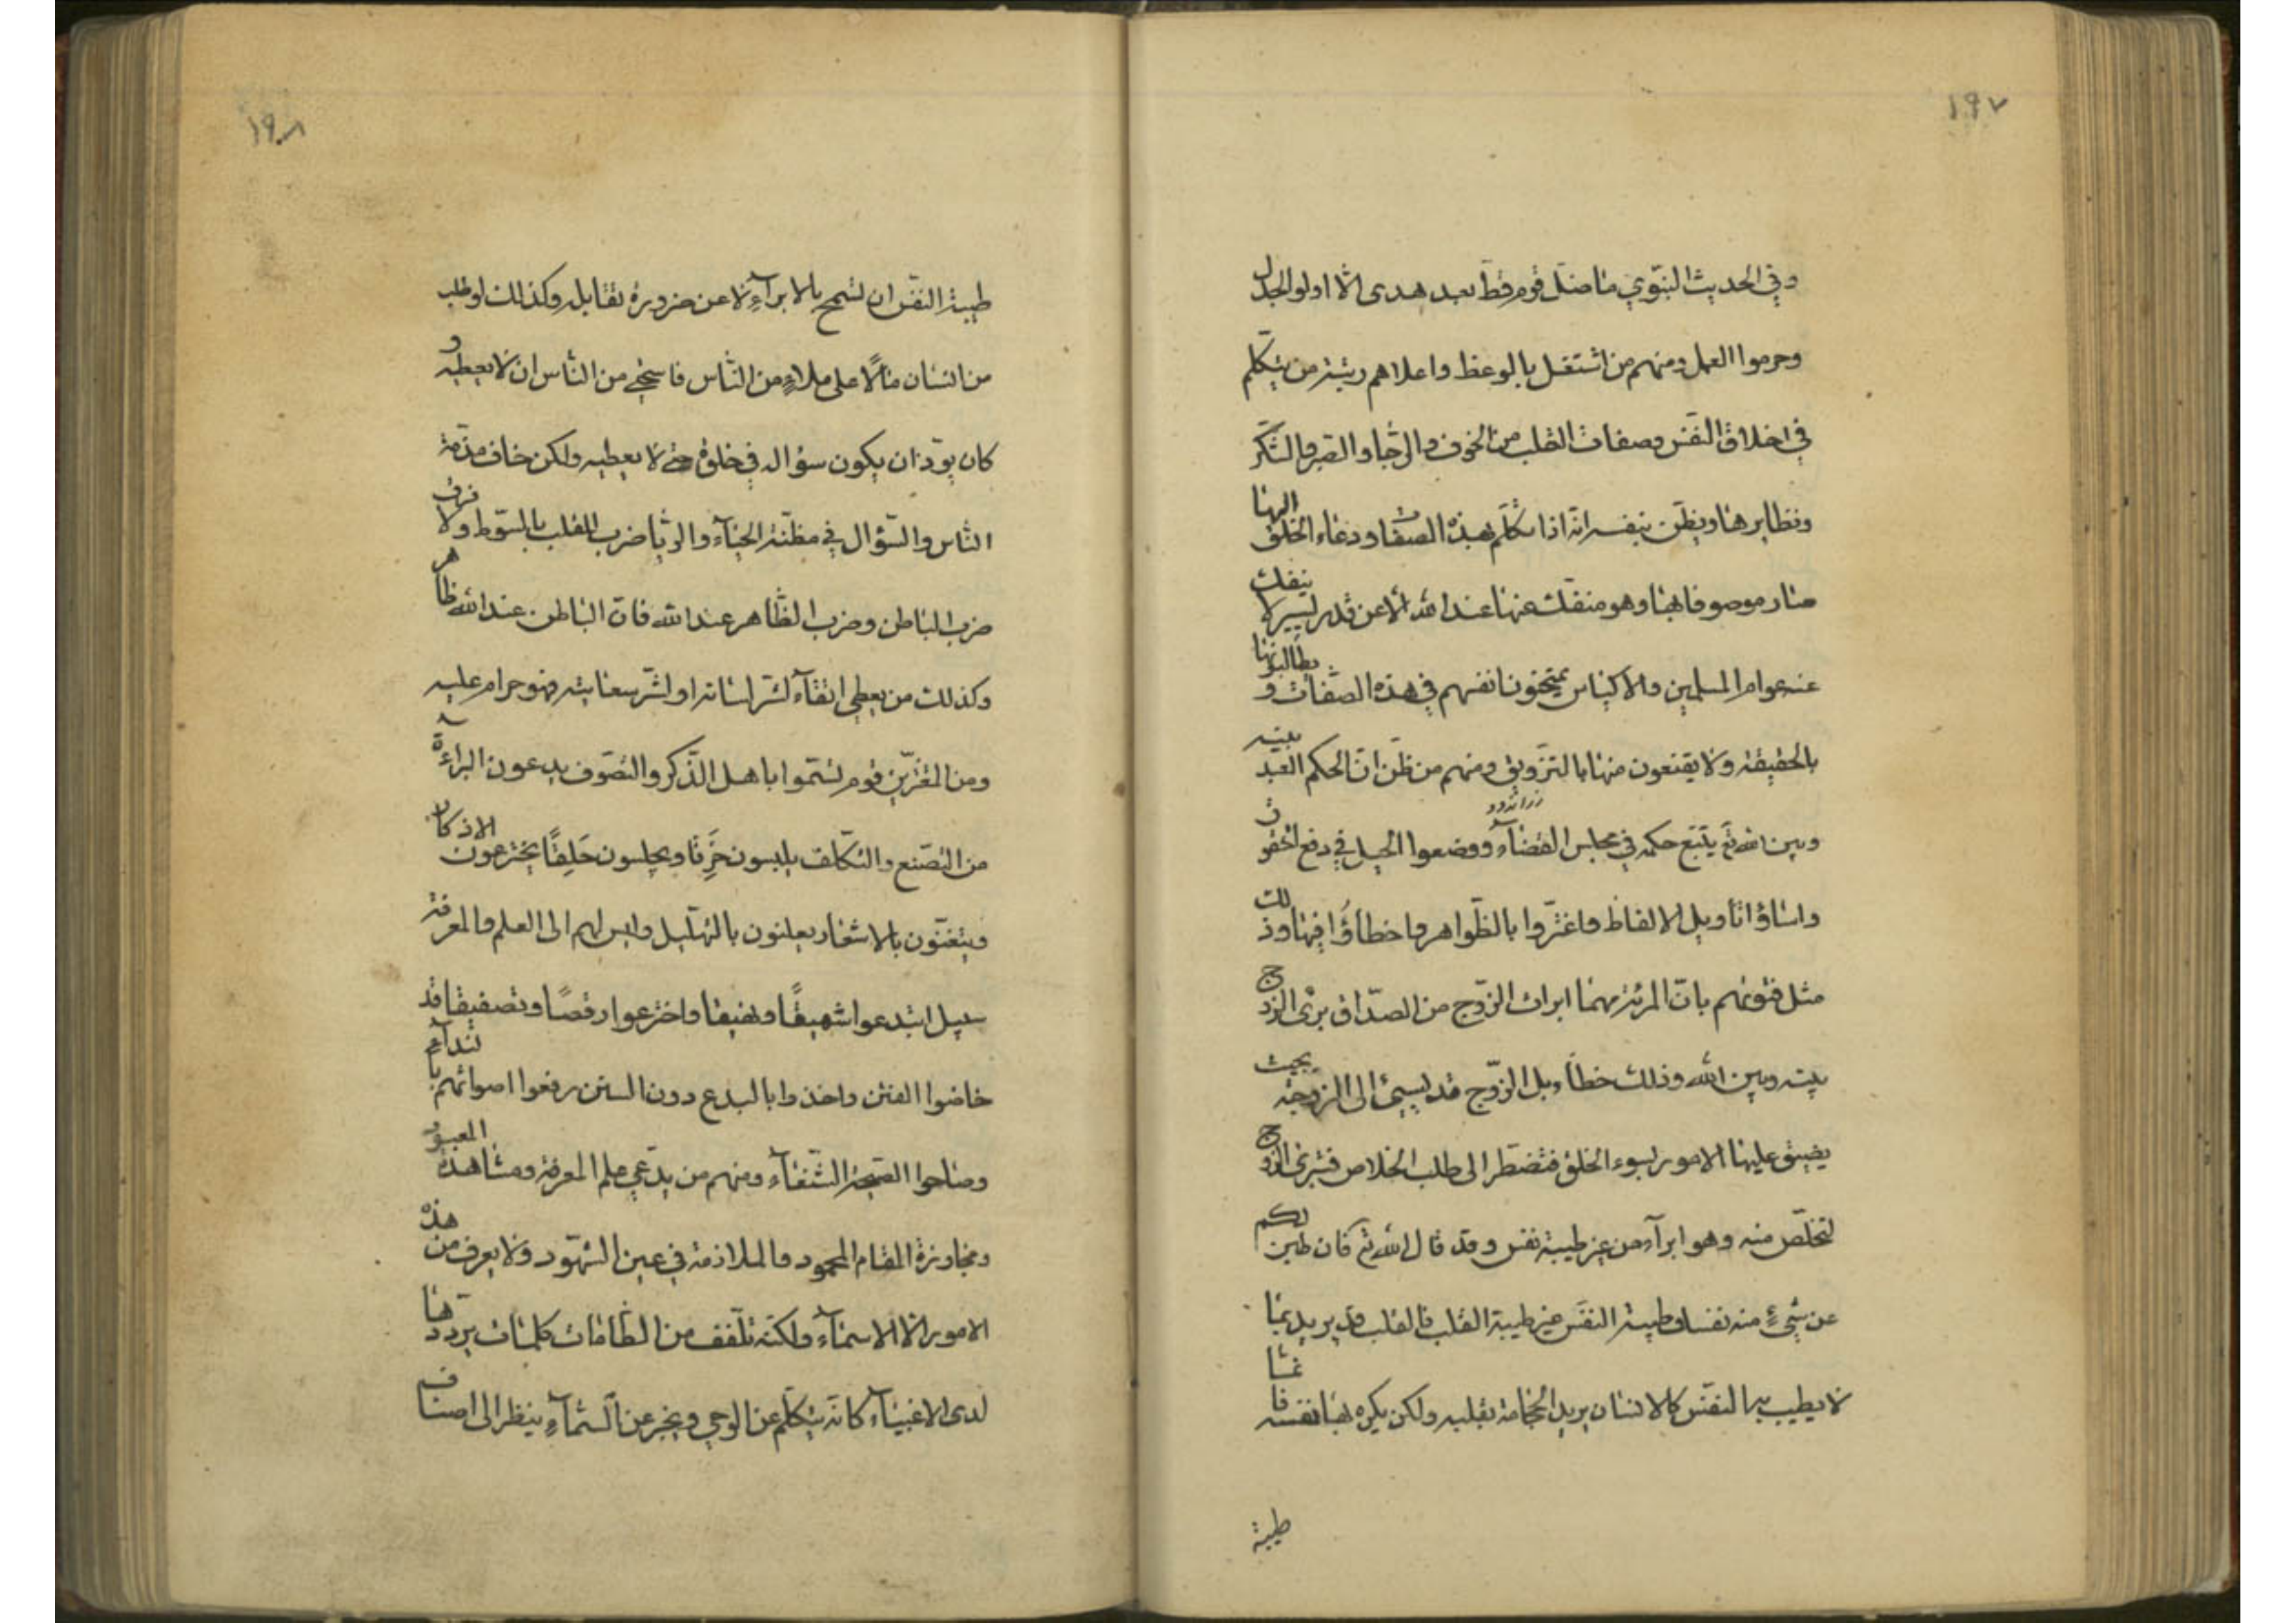 ١٩٧
وفي الحديث النبوي ما ضل قوم قط بعد هدى الا اولو الجدل
وحرموا العمل ومنهم من اشتغل بالوعظ واعلاهم رتبة من يتكلم
في اخلاق النفس وصفات القلب من الخوف والرجا والصبر والشكر
ونظايرها ويظن بنفسه انه اذا تكلم بهذه الصفات ودعاء الخلق اليها
صار موصوفا بها وهو منفك عنها عند الله الا عن قدر يسير لا ينفك
عنه عوام المسلمين والاكياس يمتحنون انفسهم في هذه الصفات و يطالبونها
بالحقيقة ولا يقنعون منها بالتزويق ومنهم من ظن ان الحكم العبد بينه
زراندود
وبين الله ثم يتبع حكمه في مجلس القضآء ووضعوا الحيل في دفع الحقوق
واساؤا تأويل الالفاظ واغتروا بالظواهر واخطأؤا فيها وذلك
مثل فتوىهم بان المرئة مهما ابرات الزوج من الصداق برئ الزوج
بينه وبين الله وذلك خطأء بل الزوج قد يسيئ الى الزوجة بحيث
يضيق عليها الامور بسوء الخلق فتضطر الى طلب الخلاص فتبرئ الزوج
لتخلص منه وهو ابرآء من غير طيبة نفس وقد قال الله تع فان طبن لكم
عن شيءٍ منه نفسا وطيبة النفس غير طيبة القلب فالقلب قد يريد بما
لا يطيب به النفس كالانسان يريد الحجامة بقلبه ولكن يكره بها نفسه فانما
طيبة
١٩٨
طيبة النفس ان تسمح بالابرآءِ لا عن ضرورة تقابله وكذلك لو طلب
من انسان مالًا على ملاءٍ من الناس فاستحي من الناس ان لا يعطيه و
كان يود ان يكون سؤاله في خلوة حتى لا يعطيه ولكن خاف مذمة
الناس والسؤال في مظنة الحيآء والريا ضرب القلب بالسوط ولا فرق
ضرب الباطن وضرب الظاهر عند الله فان الباطن عند الله ظاهر
وكذلك من يعطي اتقآء لشر لسانه او لشر سعايته فهو حرام عليه
ومن المغترين قوم تسموا باهل الذكر والتصوف يدعون البراءة
من التصنع والتكلف يلبسون خَرِقا ويجلسون حَلِقًا يخترعون الاذكار
ويتغنون بالاشعار يعلنون بالتهليل وليس لهم الى العلم والمعرفة
سبيل ابتدعوا شهيقًا ونهيقا واخترعوا رقصًا وتصفيقا قد
خاضوا الفتن واخذوا بالبدع دون السنن رفعوا اصواتهم بالندآء
وصاحوا الصيحة الشنعآء ومنهم من يدعي علم المعرفة ومشاهدة المعبود
ومجاورة المقام المحمود والملازمة في عين الشهود ولا يعرف من هذه
الامور الا الاسمآء ولكنه تلفف من الطامات كلمات يرددها
لدى الاغبيآء كانه يتكلم عن الوحي ويخبر عن السمآءِ ينظر الى اصناف